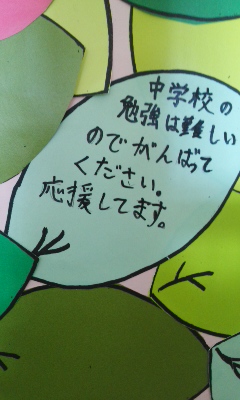 中学校の
勉強は難しい
のでがんばって
ください。
応援してます。